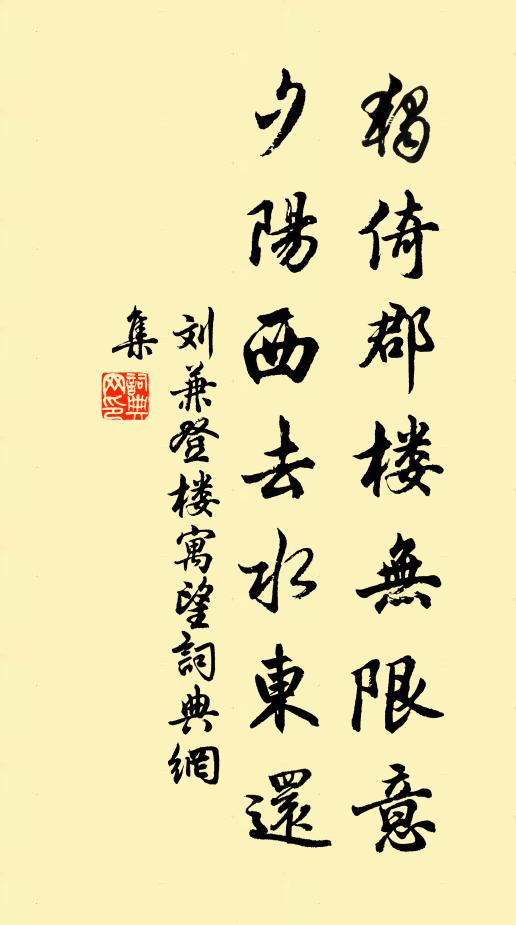 獨倚郡楼無限意
夕陽西去水東還
刘兼登楼寓望詞典網
集
詞典
网印